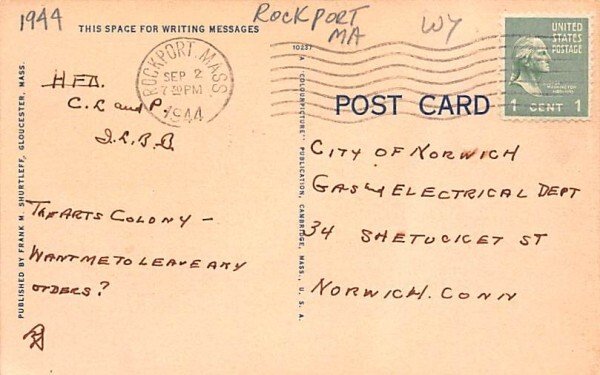 1944
ROCKPORT
MA
WY
THIS SPACE FOR WRITING MESSAGES
10237
ROCKPORT, MASS.
SEP 2
7-30 PM
1944
UNITED
STATES
POSTAGE
WASHINGTON
1 CENT 1
POST CARD
C. L. and P.
I. L. B. B
THE ARTS COLONY -
WANT ME TO LEAVE ANY
ORDERS?
CITY OF NORWICH
GAS & ELECTRICAL DEPT
34 SHETUCKET ST
NORWICH. CONN
PUBLISHED BY FRANK M. SHURTLEFF, GLOUCESTER, MASS.
A "COLOURPICTURE" PUBLICATION, CAMBRIDGE, MASS., U. S. A.